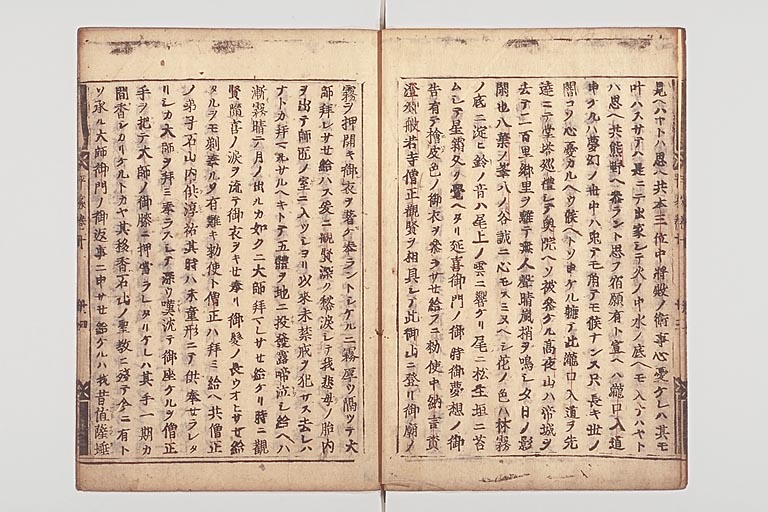 見ヘハヤトハ思ヘ共本三位中将殿ノ御事心憂ケレハ其モ
叶ハスサテハ是ニテ出家シテ火ノ中水ノ底ヘモ入ラハヤト
ハ思ヘ共熊野ヘ参ラント思フ宿願有ト宣ヘハ瀧口入道
申ケルハ夢幻ノ世中ハ兎テモ角テモ候ナンス只長キ世ノ
闇コソ心憂カルヘウ候ヘトソ申ケル軈テ此瀧口入道ヲ先
達ニテ堂塔巡禮シテ奥院ヘソ被参ケル高夜山ハ帝城ヲ
去テ二百里郷里ヲ離テ無人聲晴嵐梢ヲ鳴シ夕日ノ影
閑也八葉ノ峯八ノ谷誠ニ心モスミヌヘシ花ノ色ハ林霧
ノ底ニ淀ヒ鈴ノ音ハ尾上ノ雲ニ響ケリ尾ニ松生垣ニ苔
ムシテ星霜久ク覺ヘタリ延喜御門ノ御時御夢想ノ御
告有テ檜皮色ノ御衣ヲ参ラサせ給フニ勅使中納言資
澄卿般若寺僧正觀賢ヲ相具シテ此御山ニ登リ御廟ノ
霧ヲ押開キ御衣ヲ着セ奉ラントシケルニ霧厚ツ隔ツテ大
師拜レサせ給ハス爰ニ觀賢深ク愁涙シテ我悲母ノ胎内
ヲ出テ師匠ノ室ニ入ツシヨリ以來未禁戒ヲ犯サス去レハ
ナトカ拜ヘルサルヘキトテ五體ヲ地ニ投發露啼泣シ給ヘハ
漸霧晴テ月ノ出ルカ如クニ大師拜マレサせ給ケリ時ニ觀
賢隨喜ノ涙ヲ流テ御衣ヲキせ奉リ御髪ノ長ウオヒサせ給
タルヲモ剃奉ルソ有難キ勅使ト僧正ハ拜ミ給ヘ共僧正
ノ弟子石山内供淳祐其時ハ未童形ニテ供奉セラレタ
リシカ大師ヲ拜ミ奉ラスシテ深ウ嘆沈テ御座ケルヲ僧正
手ヲ把テ大師ノ御膝ニ押當ラレタリケレハ其手一期カ
間香シカリケルトカヤ其移香石山ノ聖教ニ殘テ今ニ有ト
ソ承ル大師御門ノ御返事ニ申サせ給ケルハ我昔値薩埵